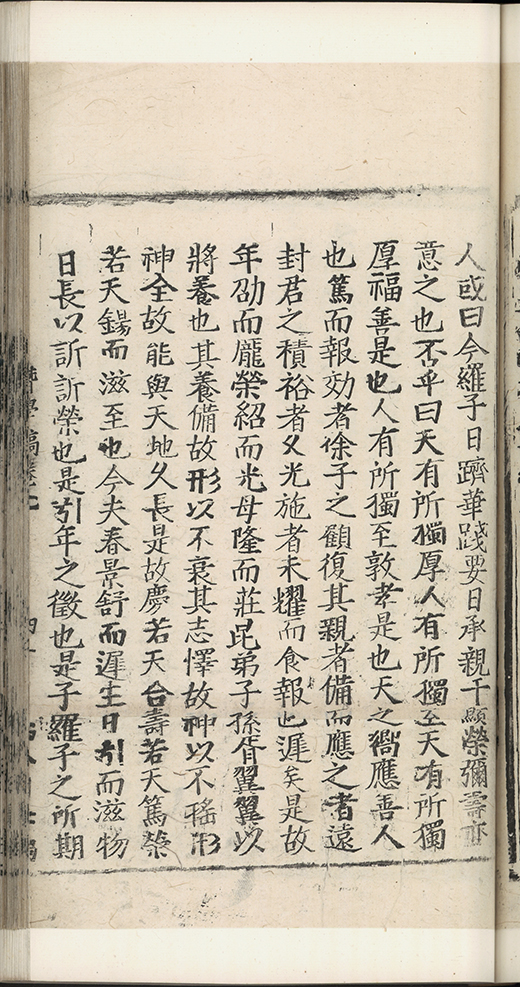 人或曰今羅子日躋華踐要日承親于顯榮彌壽亦
意之也不乎曰天有所獨厚人有所獨至天有所獨
厚福善是也人有所獨至敦孝是也天之嚮應善人
也篤而報効者徐子之顧復其親者備而應之者遠
封君之積裕者久光施者未耀而食報也遲矣是故
年劭而龎榮紹而光母隆而莊昆弟子孫胥翼翼以
將養也其養備故形以不衰其志懌故神以不瑤形
神全故能與天地久長是故慶若天合壽若天篤榮
若天錫而滋至也今夫春景舒而遲生日引而滋物
日長以訢訢榮也是引年之徵也是子羅子之所期